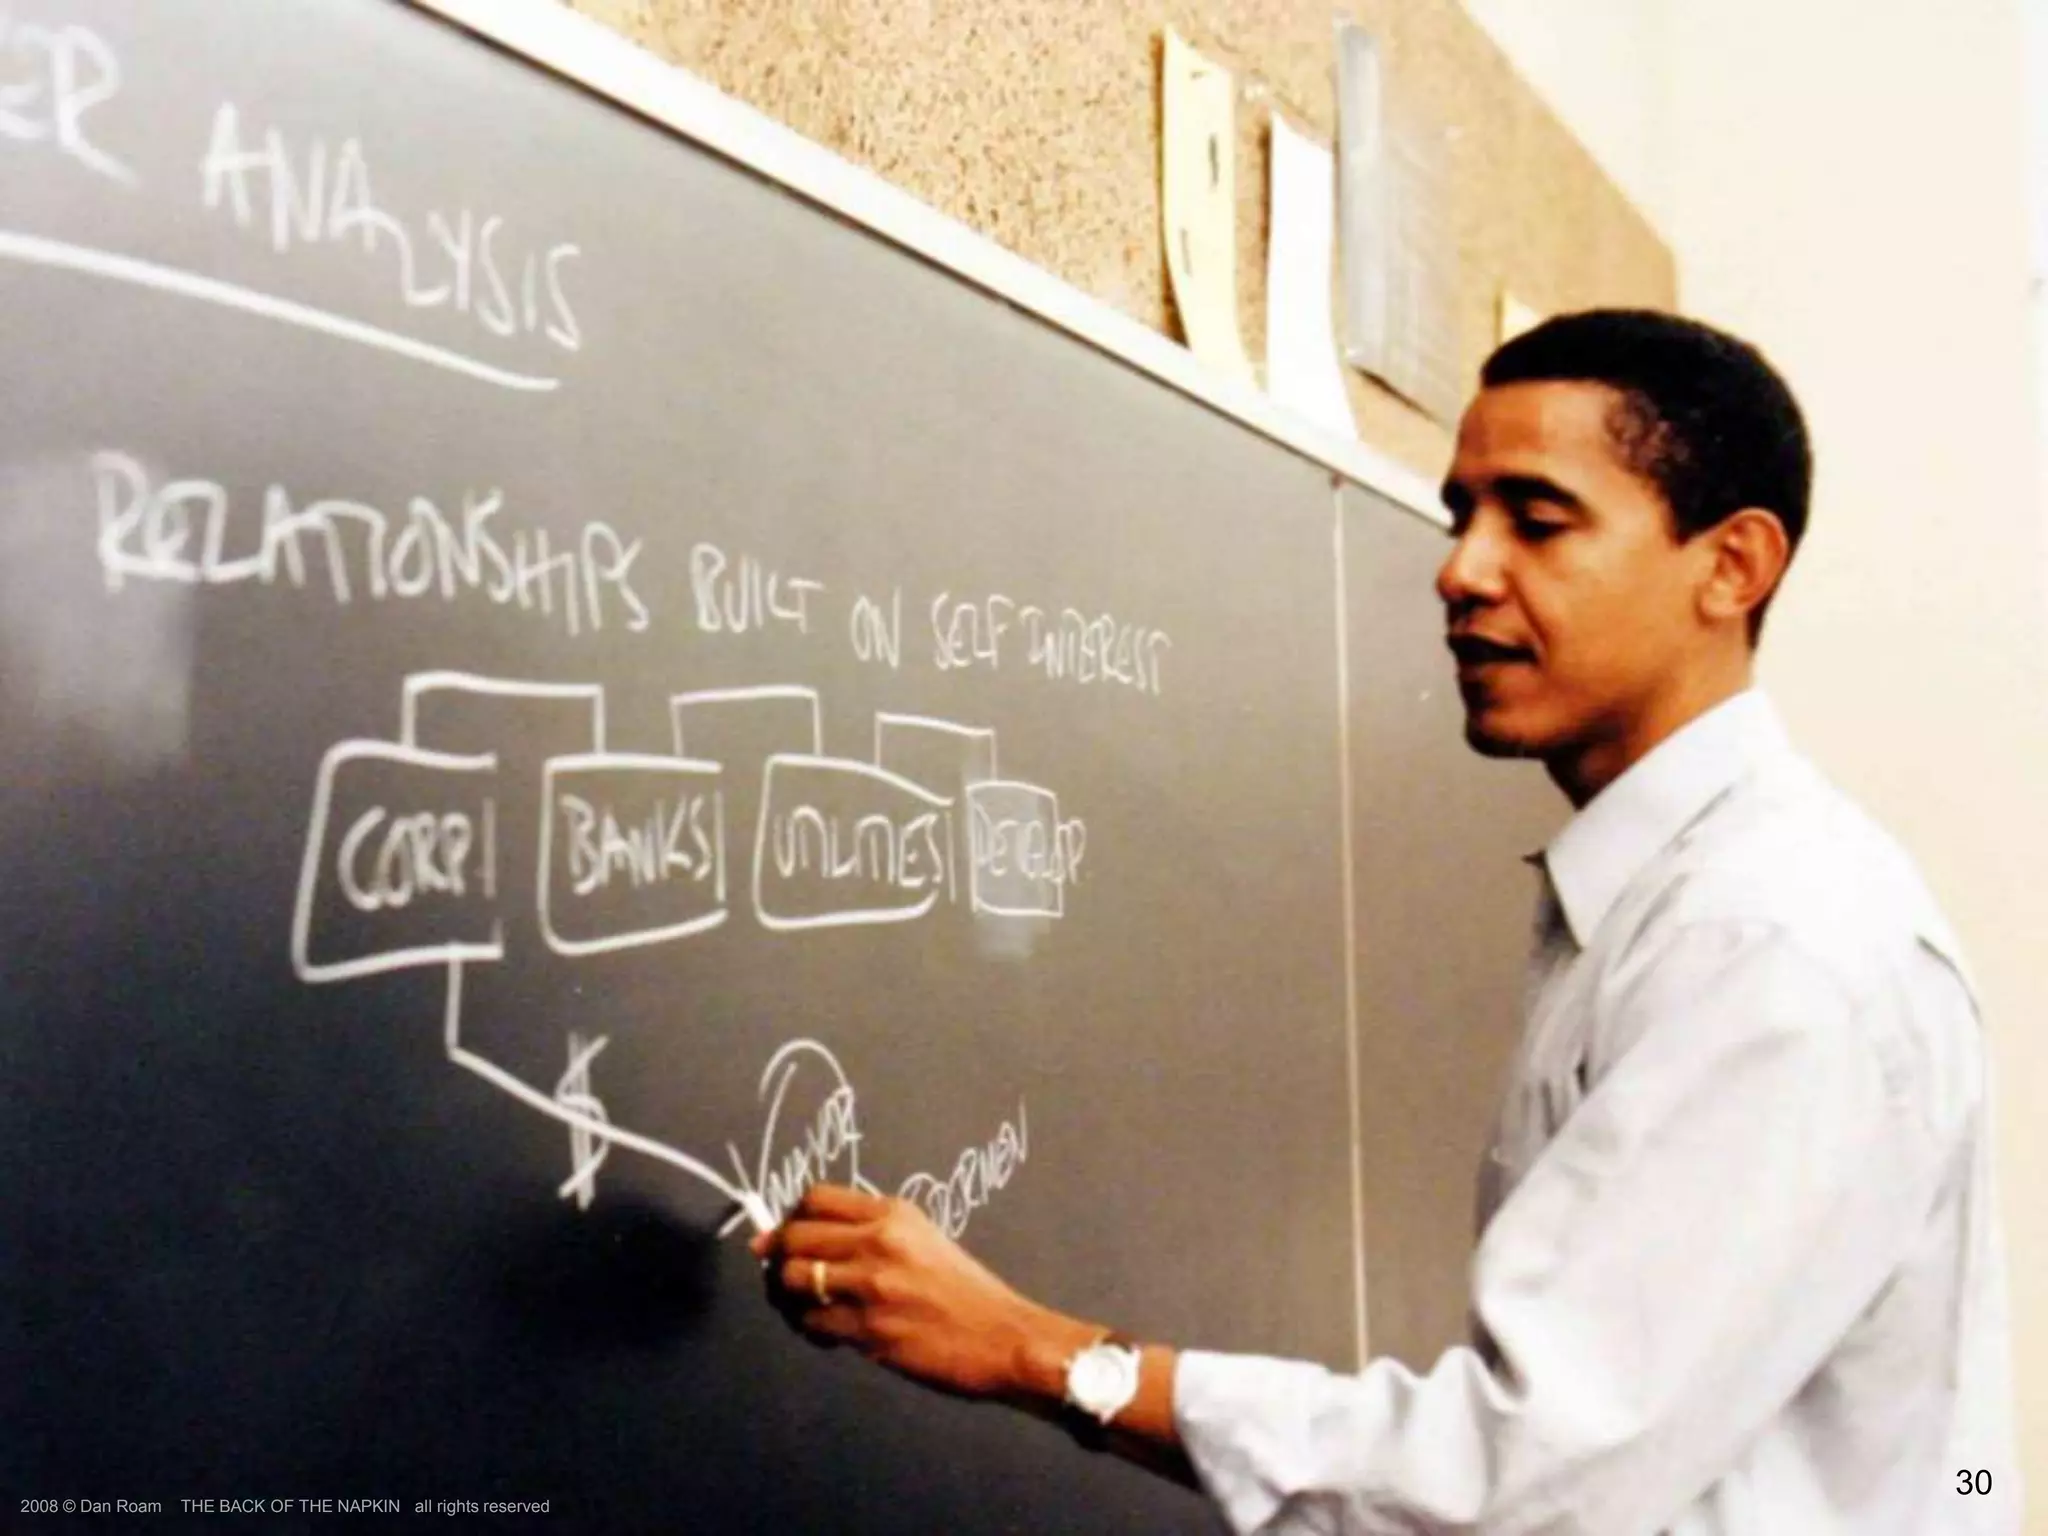 ER ANALYSIS
RELATIONSHIPS BUILT ON SELF INTEREST
CORP. BANKS UTILITIES DEVELOP.
$
MAYOR
30
2008 © Dan Roam THE BACK OF THE NAPKIN all rights reserved